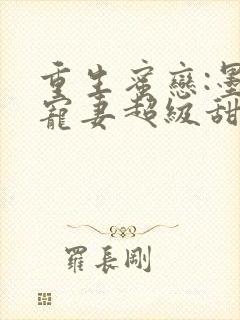 重生蜜戀:墨
寵妻超級甜
羅長剛